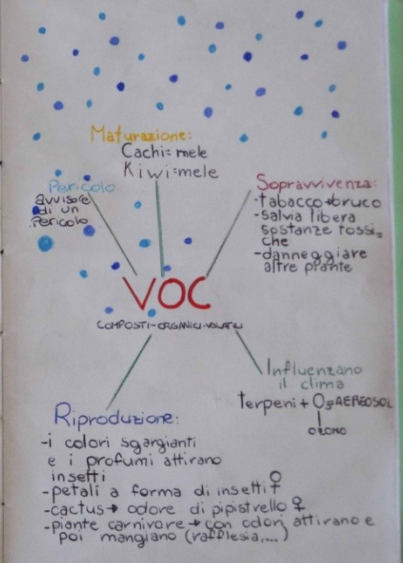 Maturazione:
Cachi=mele
Kiwi=mele
Pericolo:
avvisare
di un
pericolo
Sopravvivenza:
-tabacco→bruco
-salvia libera
sostanze tossi=
che
-danneggiare
altre piante
VOC
COMPOSTI-ORGANICI-VOLATILI
Influenzano
il clima
terpeni + O3=AEREOSOL
OZONO
Riproduzione:
-i colori sgargianti
e i profumi attirano
insetti
-petali a forma di insetti ♀
-cactus→ odore di pipistrello ♀
-piante carnivore→con odori attirano e
poi mangiano (rafflesia,...)